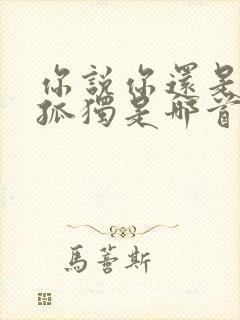 你說你還是
孤獨是那首
馬薈斯